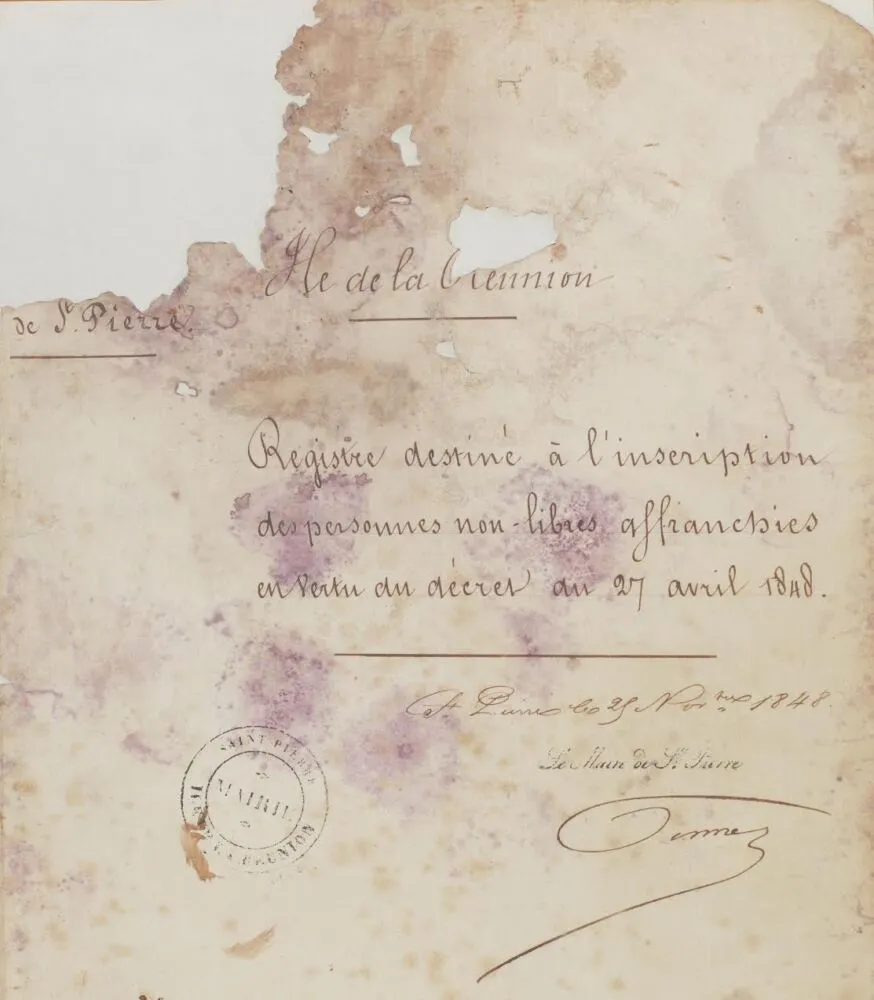 Ile de la Réunion
de St. Pierre.
Registre destiné à l'inscription
des personnes non-libres affranchies
en vertu du décret du 27 avril 1848.
St Pierre le 25 Novbre 1848.
Le Maire de St. Pierre
SAINT PIERRE
MAIRIE
ILE DE LA RÉUNION